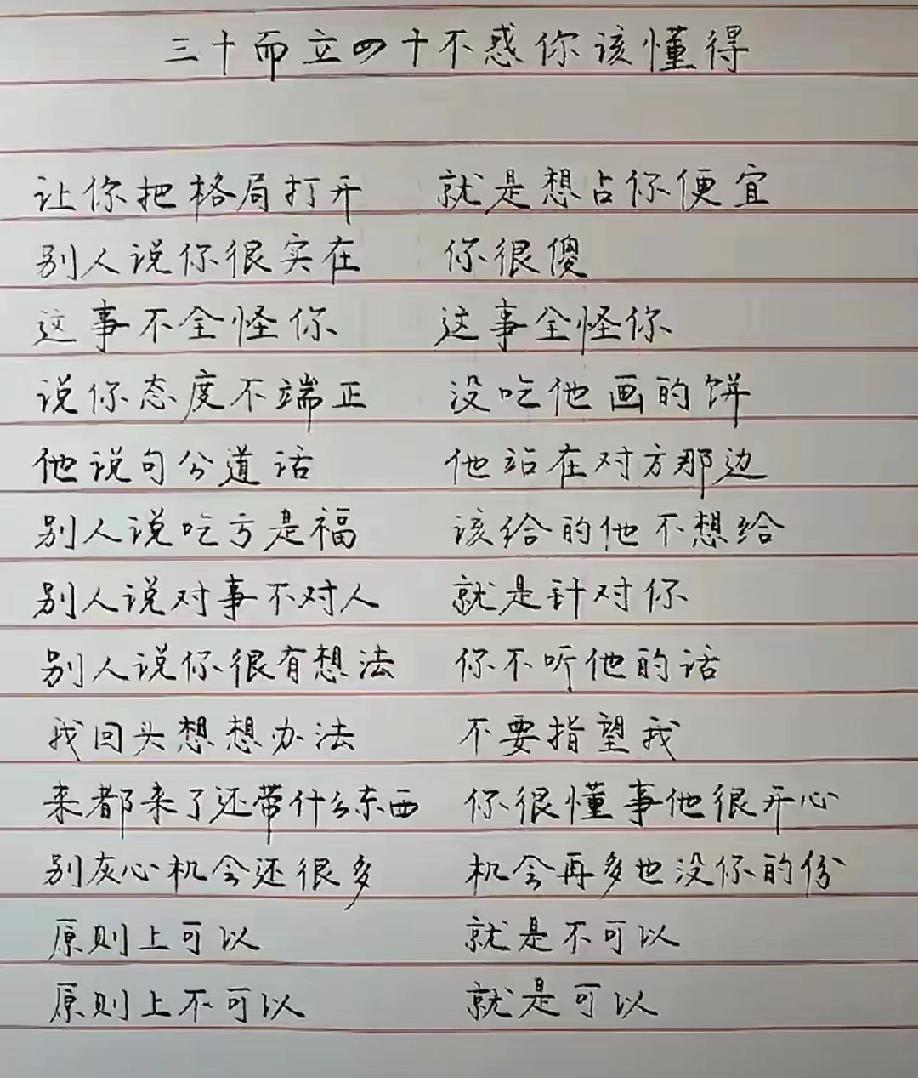 三十而立四十不惑你该懂得
让你把格局打开 就是想占你便宜
别人说你很实在 你很傻
这事不全怪你 这事全怪你
说你态度不端正 没吃他画的饼
他说句公道话 他站在对方那边
别人说吃亏是福 该给的他不想给
别人说对事不对人 就是针对你
别人说你很有想法 你不听他的话
我回头想想办法 不要指望我
来都来了还带什么东西 你很懂事他很开心
别灰心机会还很多 机会再多也没你的份
原则上可以 就是不可以
原则上不可以 就是可以